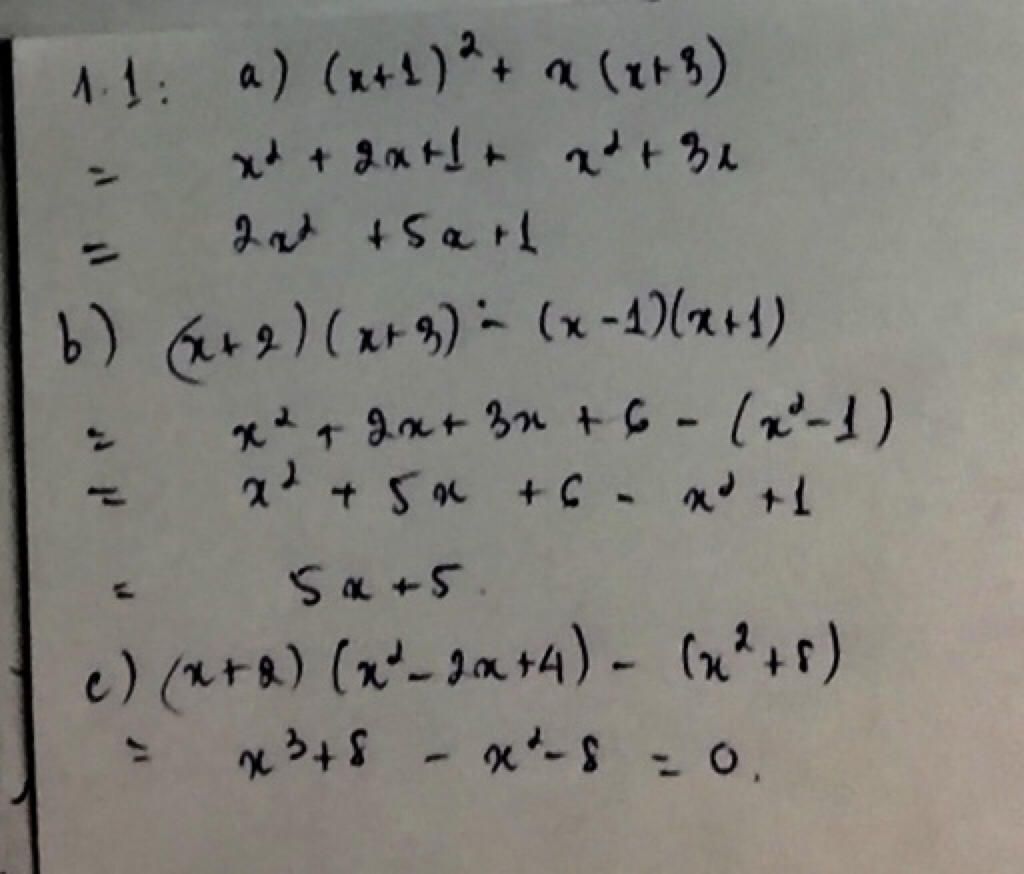 1.1: a) (x+1)² + x (x+3)
= x² + 2x+1 + x² + 3x
= 2x² + 5x+1
b) (x+2)(x+3) - (x-1)(x+1)
= x² + 2x + 3x + 6 - (x²-1)
= x² + 5x + 6 - x² + 1
= 5x + 5.
c) (x+2) (x²-2x+4) - (x²+8)
= x³+8 - x²-8 = 0.